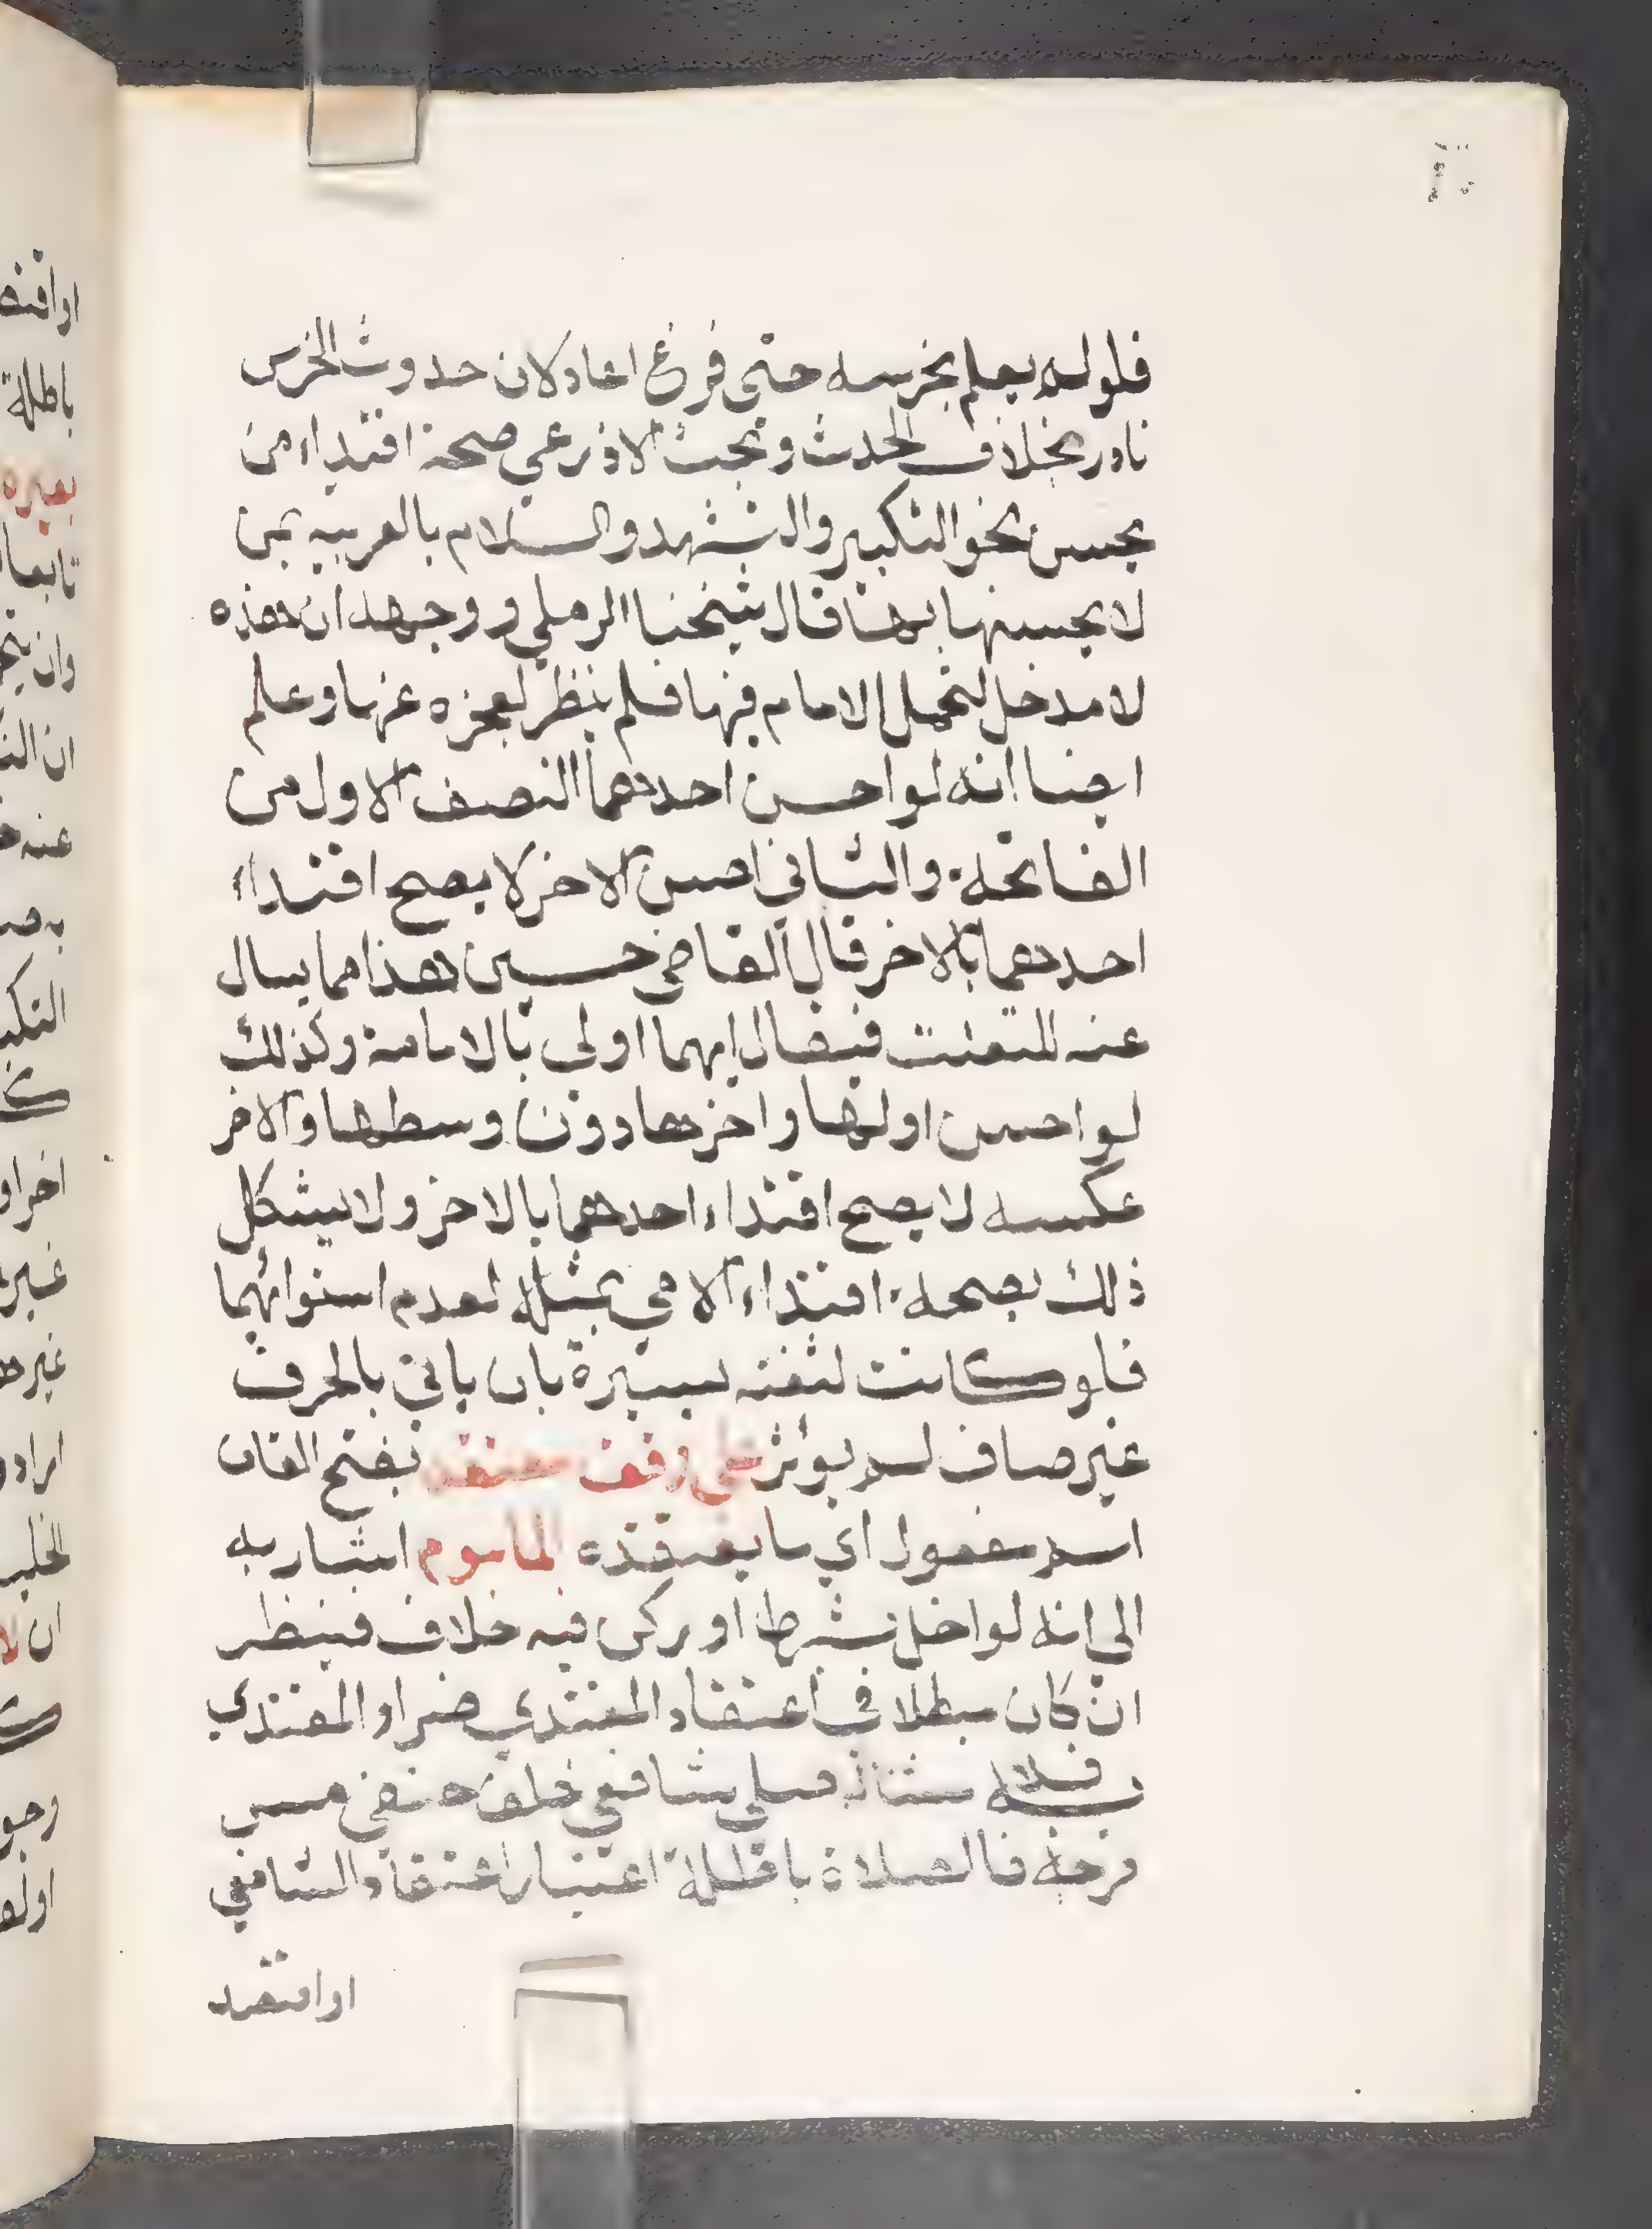 فلو لم يعلم بخرسه حتى فرغ اعاد لان حدوث الخرس
نادر بخلاف الحدث وبحث الاذرعي صحة اقتداء من
يحسن نحو التكبير والتشهد والسلام بالعربيه بمن
لا يحسنها بها قال شيخنا الرملي ووجهه ان هذه
لا مدخل لتحمل الامام فيها فلم ينظر لعجزه عنها وعلم
ايضا انه لو احسن احدهما النصف الاول من
الفاتحة والثاني احسن الاخر لا يصح اقتداء
احدهما بالاخر قال القاضي حسين هذا مما يسال
عنه للتعنت فيقال ايهما اولى بالامامة وكذلك
لو احسن اولها واخرها دون وسطها والاخر
عكسه لا يصح اقتداء احدهما بالاخر ولا يشكل
ذلك بصحة اقتداء الامي بمثله لعدم استوائهما
فلو كانت لثغته يسيرة بان ياتي بالحرف
غير صاف لم يؤثر على وفق معتقد بفتح القاف
اسم مفعول اي ما يعتقده الماموم اشار به
الى انه لو اخل بشرط او ركن فيه خلاف فينظر
ان كان مبطلا في اعتقاد المقتدي ضر او المقتدي
به فلا مثاله صلى شافعي خلف حنفي مس
فرجه فالصلاة باطلة اعتبار اعتقاد الشافعي
او افتصد
او افتصد
باطلة
بغيره
تابعا
عنه
اخر او
غير